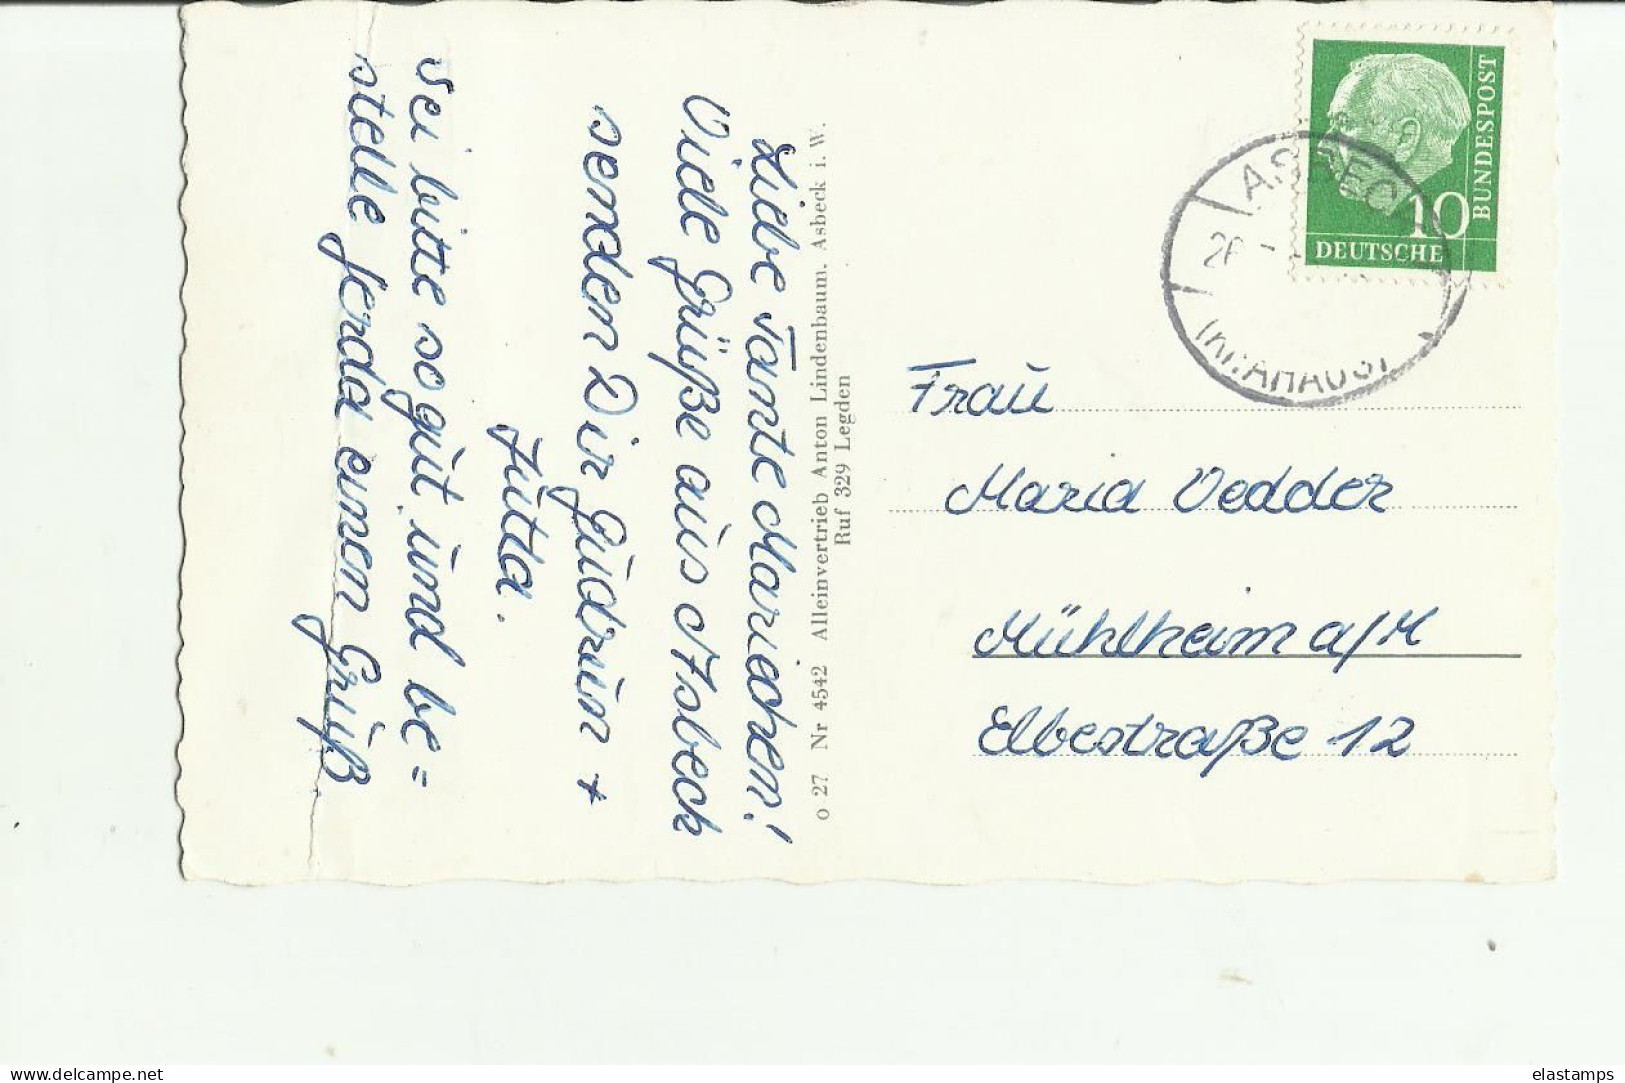 Liebe Tante Mariechen!
Viele Grüße aus Asbeck
senden Dir Gudrun +
Jutta.
Sei bitte so gut und be=
stelle Jerda einen Gruß.
o 27 Nr 4542 Alleinvertrieb Anton Lindenbaum, Asbeck i. W.
Ruf 329 Legden
BUNDESPOST
10
DEUTSCHE
Frau
Maria Vedder
Mühlheim a/M
Elbestraße 12
www.delcampe.net
elastamps